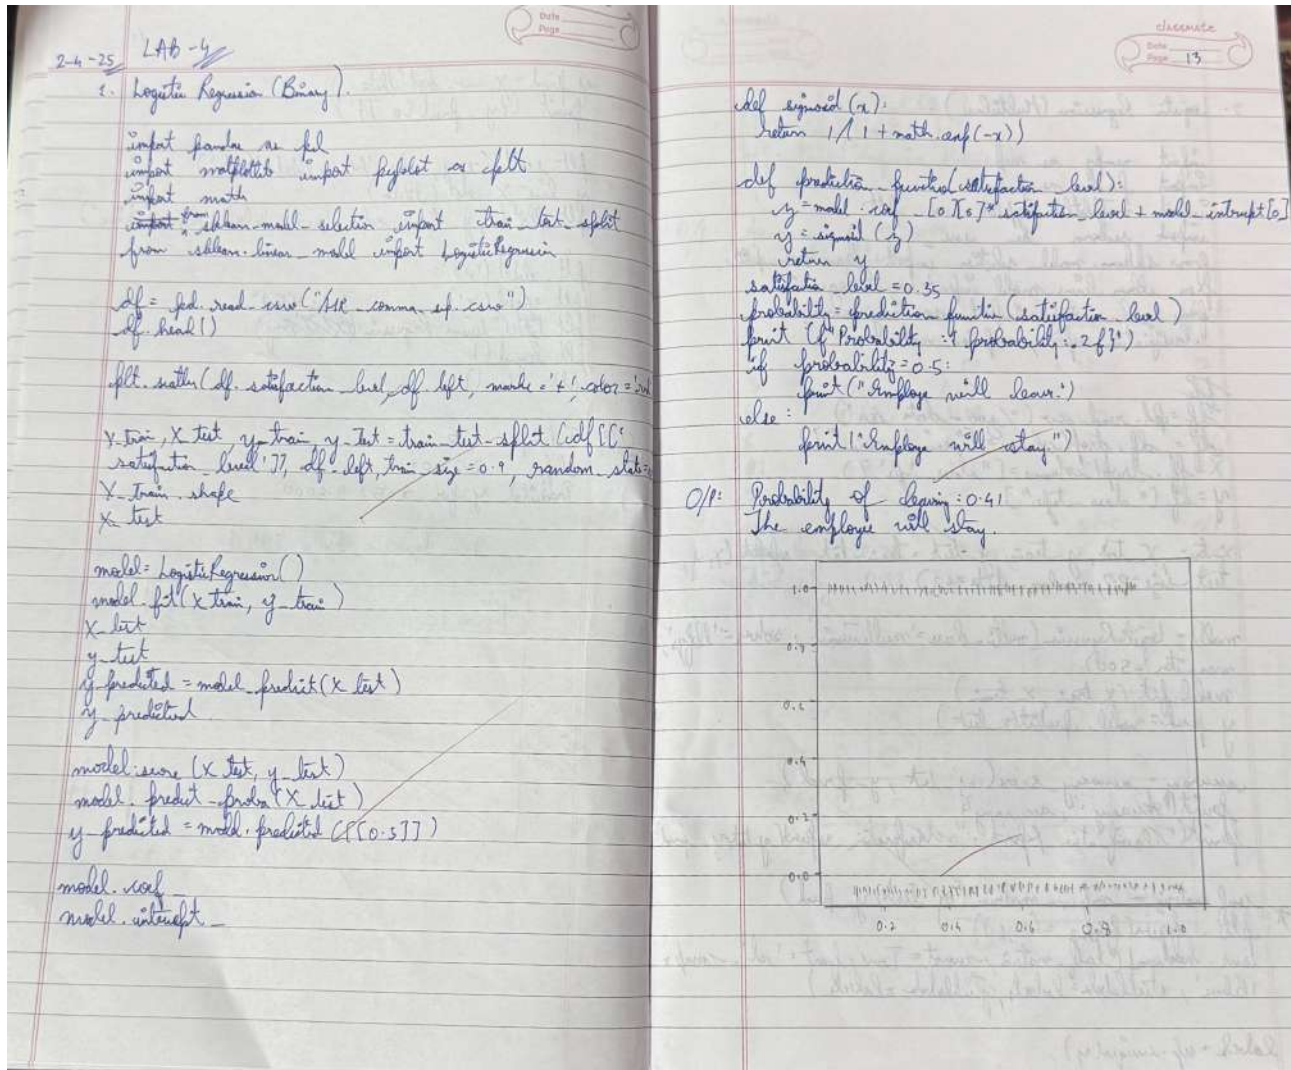 Date
Page
2-4-25 LAB-4
1. Logistic Regression (Binary).
import pandas as pd
import matplotlib import pyplot as plt
import math
from sklearn-model-selection import train_test_split
from sklearn.linear_model import LogisticRegression
df = pd.read_csv("/HR_comma_sep.csv")
df.head()
plt.scatter(df.satisfaction_level, df.left, marker='+', color='red
X_train, X_test, y_train, y_test = train_test_split(df[['
satisfaction_level']], df.left, train_size=0.9, random_state=
X_train.shape
X_test
model = LogisticRegression()
model.fit(X_train, y_train)
X_test
y_test
y_predicted = model.predict(X_test)
y_predicted
model.score(X_test, y_test)
model.predict_proba(X_test)
y_predicted = model.predicted([[0.5]])
model.coef_
model.intercept_
classmate
Date
Page 13
def sigmoid(x):
return 1/(1+math.exp(-x))
def prediction_function(satisfaction_level):
z = model.coef_[0][0]* satisfaction_level + model_intercept[0]
y = sigmoid(z)
return y
satisfaction_level = 0.35
probability = prediction_function(satisfaction_level)
print(f"Probability : {probability:.2f}")
if probability>=0.5:
print("Employee will leave.")
else:
print("Employee will stay.")
O/P: Probability of leaving: 0.41
The employee will stay.
1.0
0.4
0.2
0.0
0.2 0.4 0.6 0.8 1.0